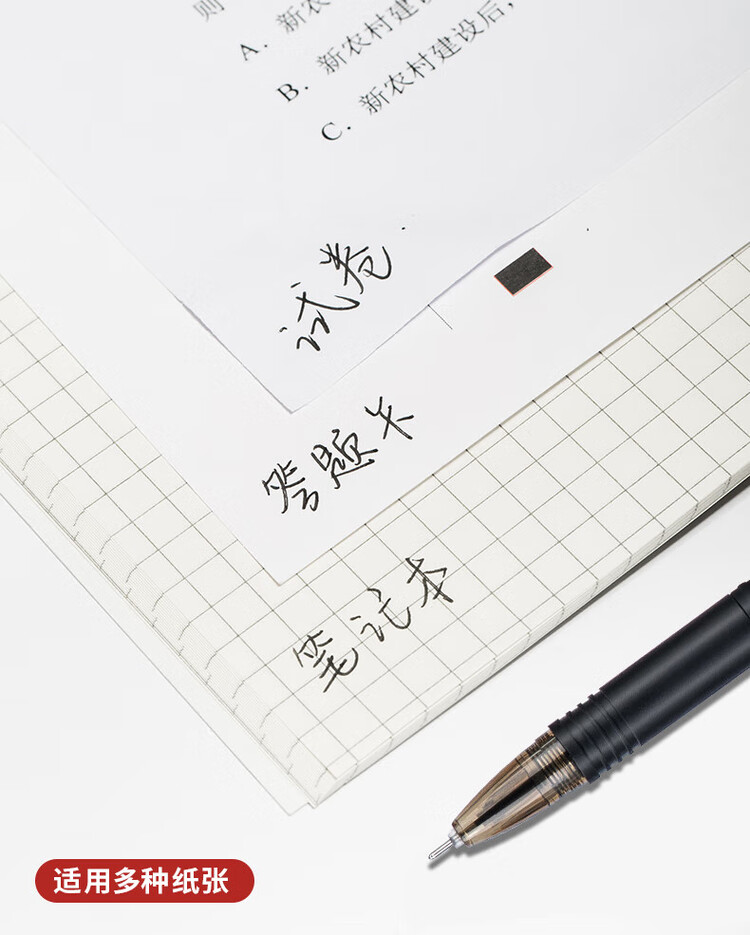 则
A. 新农
B. 新农村建设
C. 新农村建设后，
试卷
答题卡
笔记本
适用多种纸张